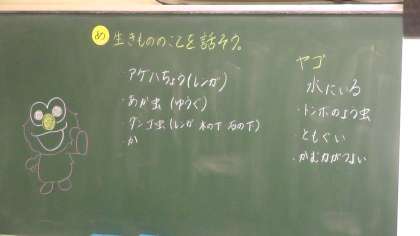 め 生きもののことを話そう。
・アゲハちょう(レンガ)
・あか虫(ゆうぐ)
・ダンゴ虫(レンガ 木の下 石の下)
・か
ヤゴ
水にいる
・トンボのよう虫
・ともぐい
・かむ力がつよい